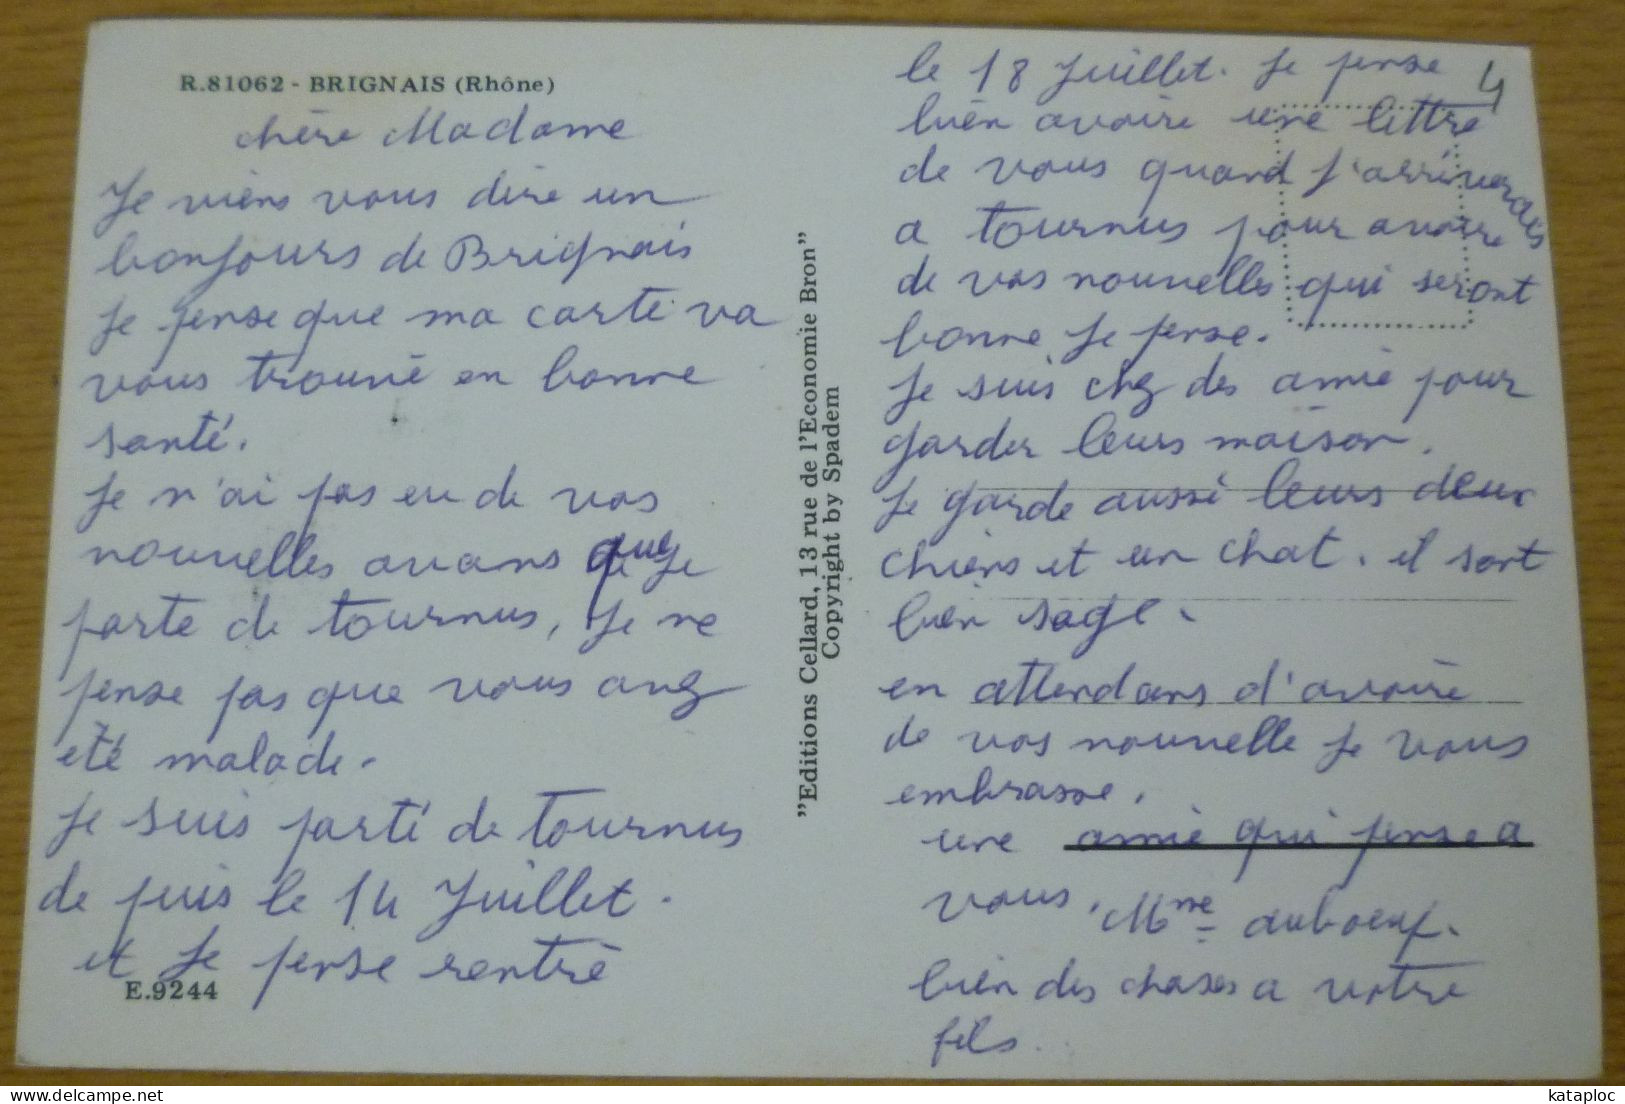 R.81062 - BRIGNAIS (Rhône)
chère Madame
Je viens vous dire un
bonjours de Brignais
Je pense que ma carte va
vous trouvé en bonne
santé.
Je n'ai pas eu de vos
nouvelles avans que Je
parte de tournus, Je ne
pense pas que vous ang
été malade.
Je suis parti de tournus
de puis le 14 Juillet.
et Je pense rentré
E.9244
"Editions Cellard, 13 rue de l'Economie Bron"
Copyright by Spadem
4
le 18 Juillet. Je pense
bien avoire une lettre
de vous quand J'arriverais
a tournus pour avoire
de vos nouvelles qui seront
bonne Je pense.
Je suis chez des amie pour
garder leurs maison.
Je garde aussi leurs deux
chiens et un chat. il sont
bien sage.
en attendans d'avoire
de vos nouvelle Je vous
embrasse.
une amie qui pense a
vous. Mme auboeuf.
bien des choses a votre
fils.
kataploc